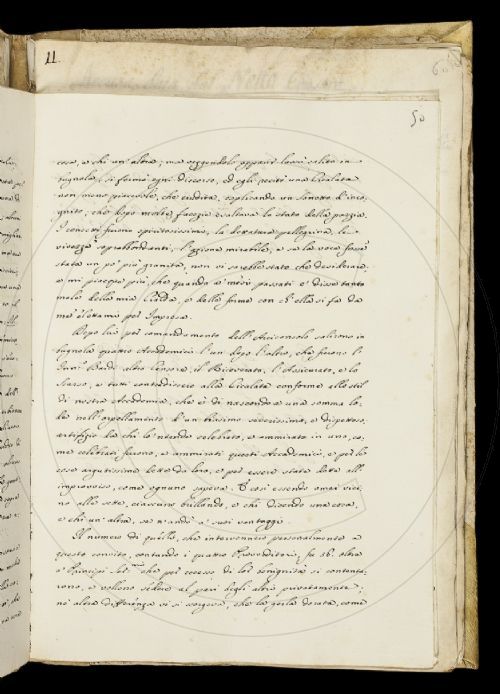 11.
50
cosa, e chi un'altra; ma veggendolo apparir lassù salito in
bugnola, si fermò ogni discorso, ed egli recitò una Cicalata
non meno piacevole, che erudita, esplicando un sonetto d'inco-
gnito, che dopo molte facezie esaltava lo stato della pazzia.
I concetti furono spiritosissimi, la letteratura pellegrina, le
vivezze soprabbondanti, l'azione mirabile, e se la voce fosse
stata un po' più granita, non vi sarebbe stato che desiderare.
e mi piacque più, che quando a' mesi passati e' disse tanto
male della mia Giada, e della fune con ch'ella si fa da
me eletta mia per Impresa.
Dopo lui per comandamento dell'Arciconsolo salirono in
bugnola quattro Accademici l'un dopo l'altro, che furono l'
Baldi altro Censore, il Ricoverato, l'Assicurato, e lo
Scarso, e tutti contradissero alla Cicalata conforme allo stil
di nostra Accademia, che è di nascondere una somma lo-
de nell'orpellamento d'un biasimo vivacissimo, e dispettoso,
artifizio da chi lo 'ntende celebrato, e ammirato in uno, co-
me celebrati furono, e ammirati questi Accademici, e per le
cose argutissime dette da loro, e per essere state dette all'
improvviso, come ognuno sapeva. E così essendo omai vici-
no alle sette, ciascuno brillando, e chi dicendo una cosa,
e chi un'altra, se n'andò a' suoi vantaggi.
Il numero di quelli, che intervennero personalmente a
questo convito, contando i quattro Provveditori, fu 36. oltre
a' Principi Ser.mi che per eccesso di lor benignità si contenta-
rono, e vollono sedere al pari degli altri privatamente;
nè altra differenza vi si scorgeva, che la gerla dorata, come